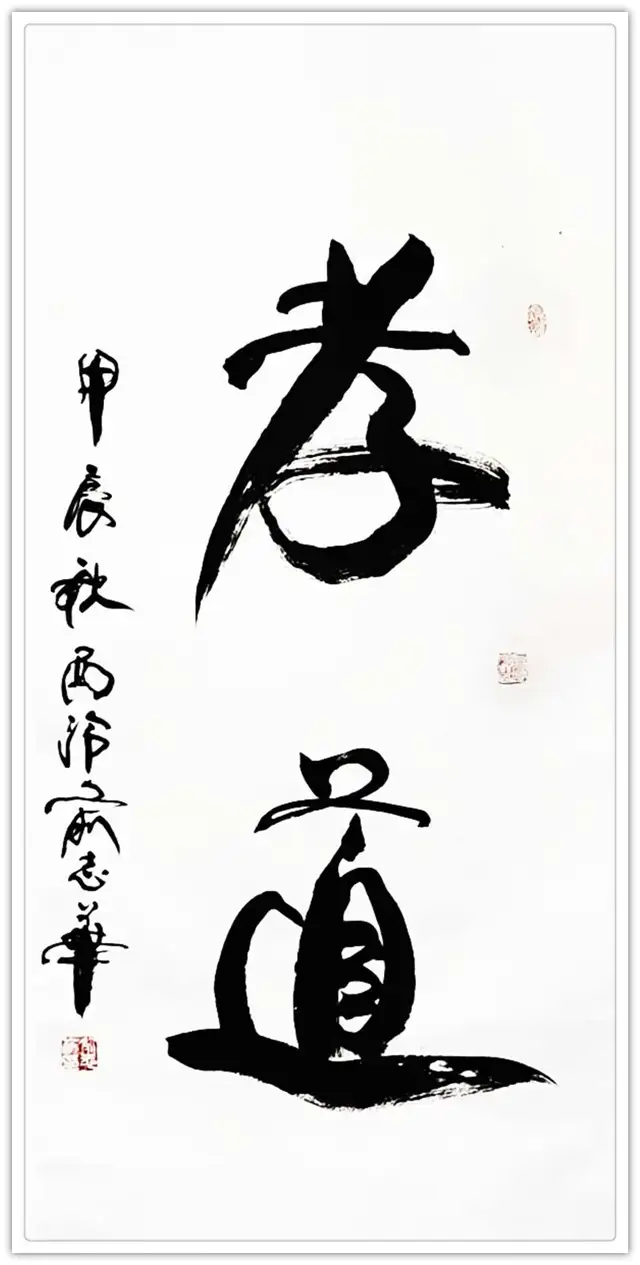 孝道
甲辰秋西泠俞志華